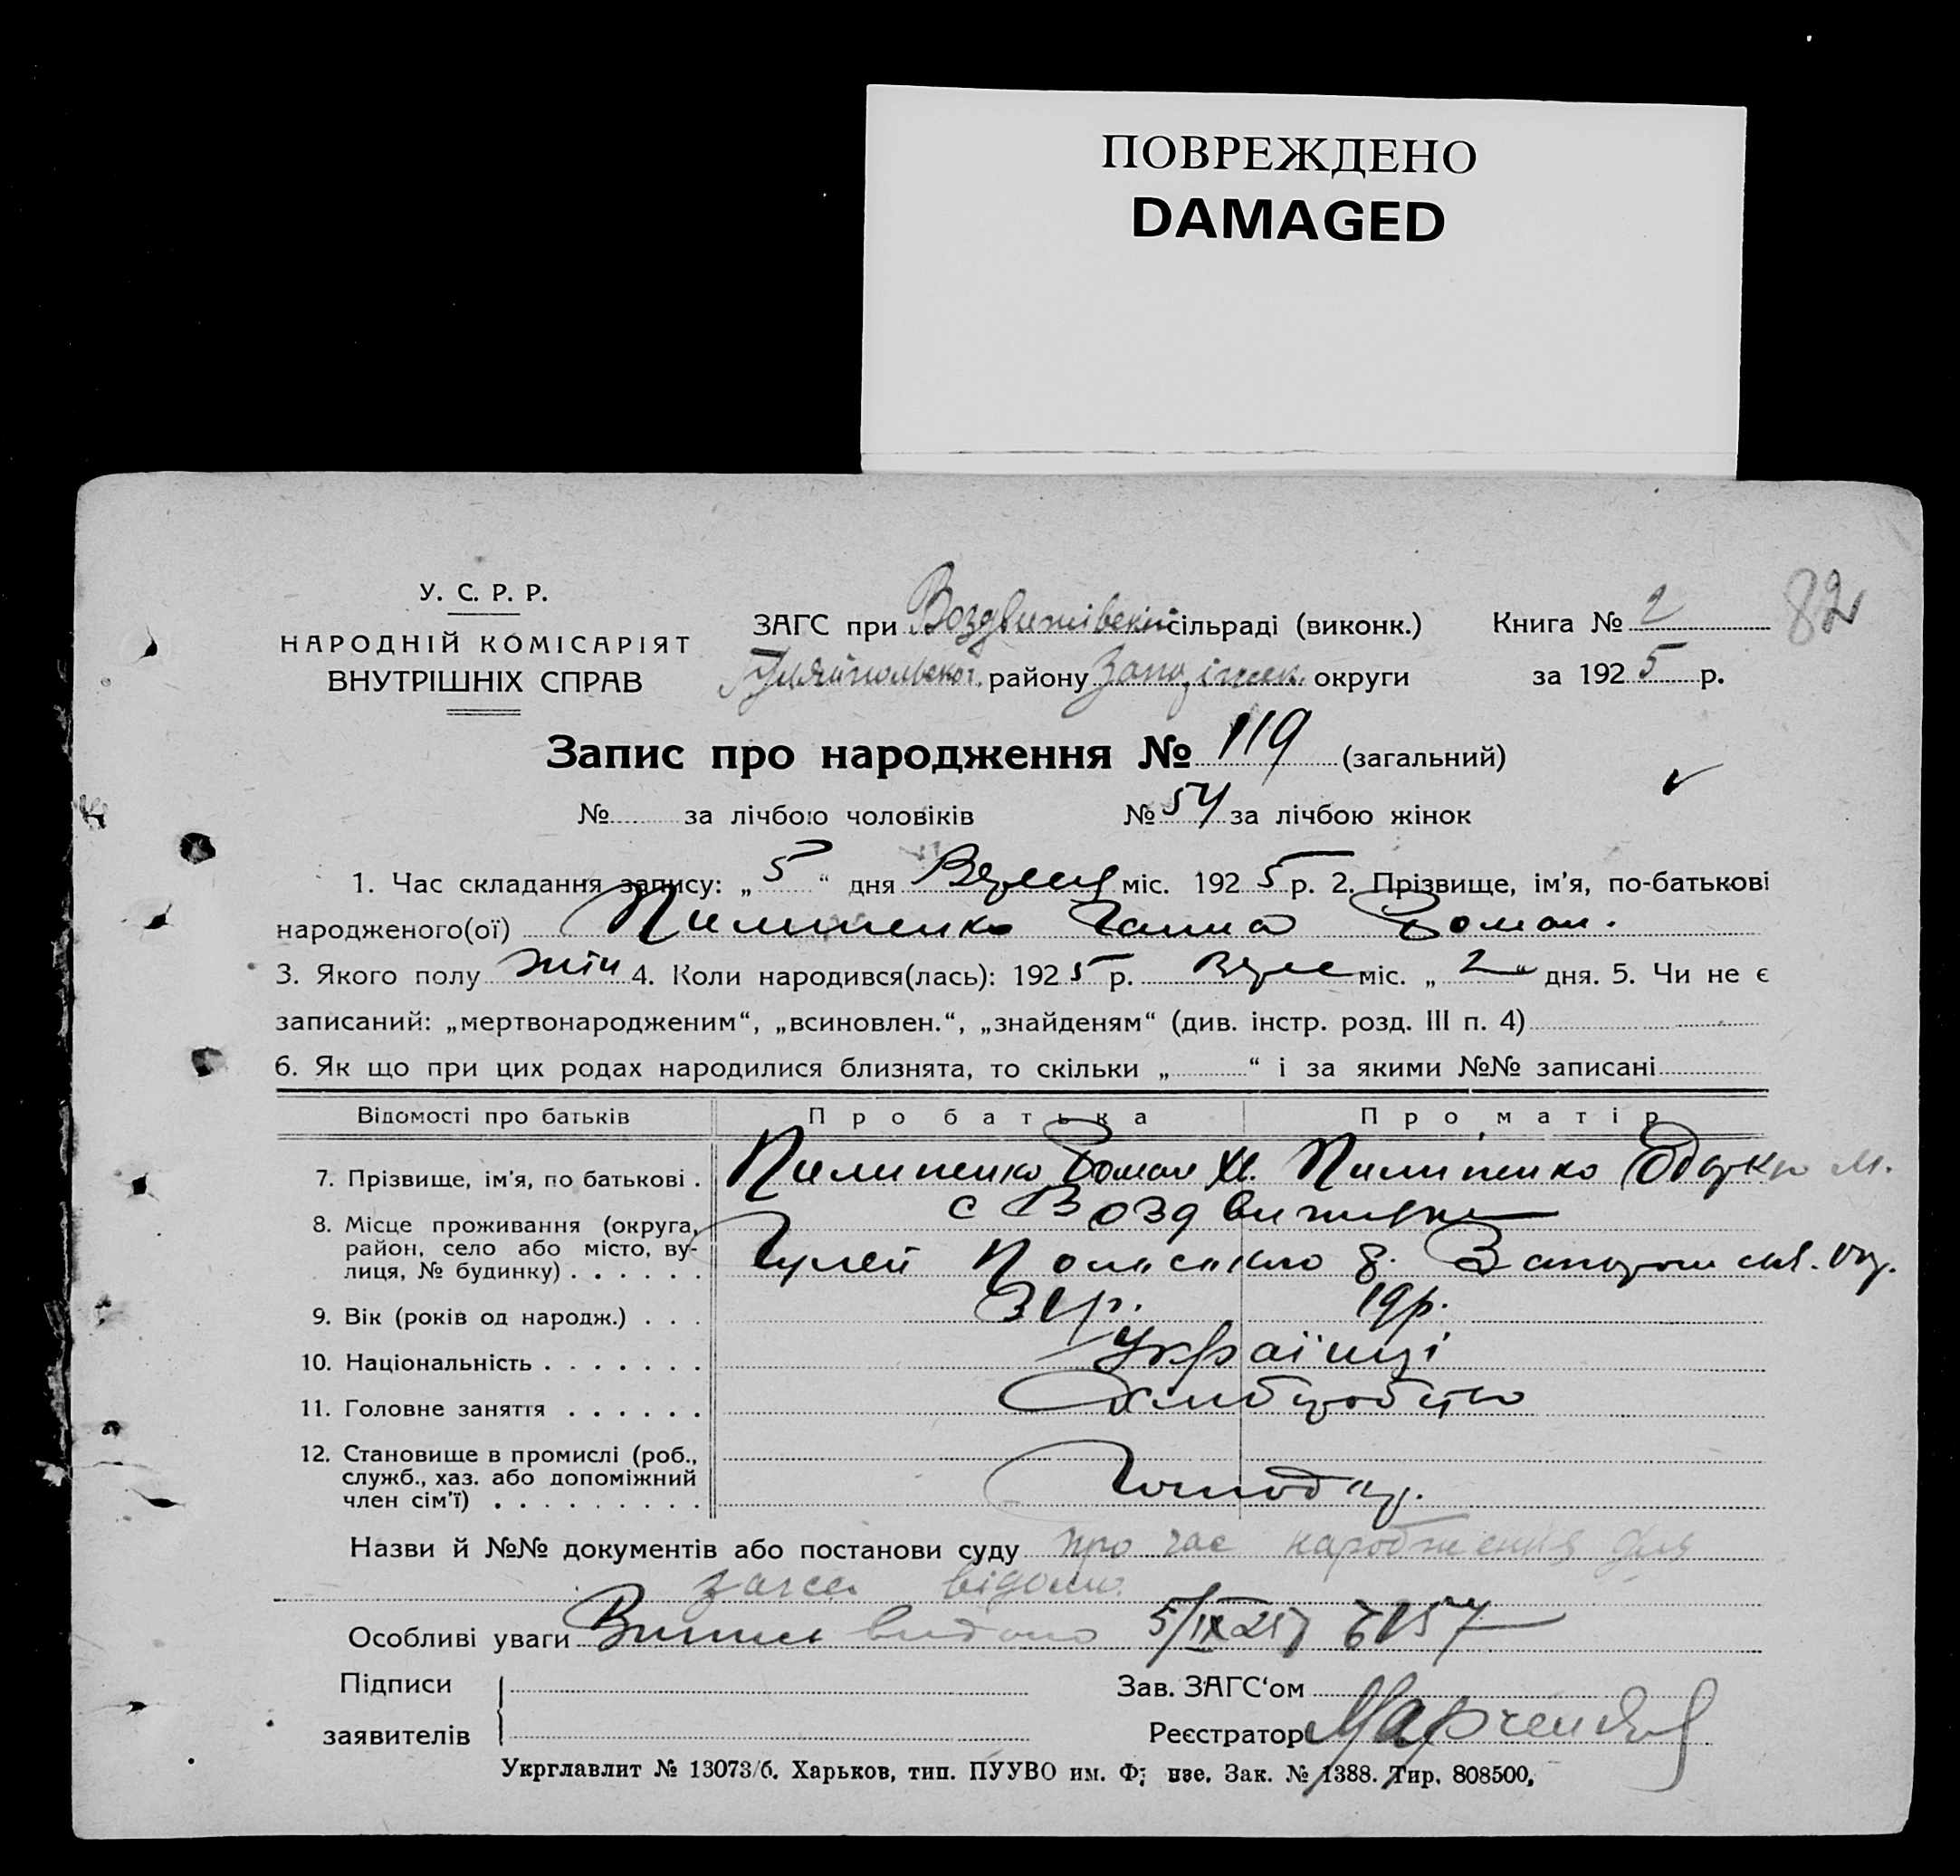 ПОВРЕЖДЕНО
DAMAGED
У. С. Р. Р.
НАРОДНІЙ КОМІСАРІЯТ
ВНУТРІШНІХ СПРАВ
ЗАГС при Воздвижівські сільраді (виконк.)
Гуляйпольськ. району Запоріжск. округи
Книга № 2
за 1925 р.
82
Запис про народження № 119 (загальний)
№ за лічбою чоловіків № 54 за лічбою жінок
1. Час складання запису: „5“ дня Вересня міс. 1925 р. 2. Прізвище, ім'я, по-батькові
народженого(ої) Пилипенко Ганна Роман.
3. Якого полу жін 4. Коли народився(лась): 1925 р. Вересн міс. „2“ дня. 5. Чи не є
записаний: „мертвонародженим“, „всиновлен.“, „знайденям“ (див. інстр. розд. III п. 4)
6. Як що при цих родах народилися близнята, то скільки „ “ і за якими №№ записані
Відомості про батьків Про батька Про матір
7. Прізвище, ім'я, по батькові . Пилипенко Роман Пилипенко Одарка М.
8. Місце проживання (округа, район, село або місто, вулиця, № будинку) . . . . . . с Воздвижівка
Гуляй Польського р. Запорожськ. ок.
9. Вік (років од народж.) . . . 31 р. 19 р.
10. Національність . . . . . . . Українці
11. Головне заняття . . . . . . Хлібробство
12. Становище в промислі (роб., служб., хаз. або допоміжний член сім'ї) . . . . . . . . . Господар.
Назви й №№ документів або постанови суду про час народження для
загса відомо.
Особливі уваги Випис видано 5/IX 25 р 6157
Підписи
заявителів
Зав. ЗАГС'ом
Реєстратор Марченко
Укрглавлит № 13073/б. Харьков, тип. ПУУВО им. Фрунзе. Зак. № 1388. Тир. 808500.